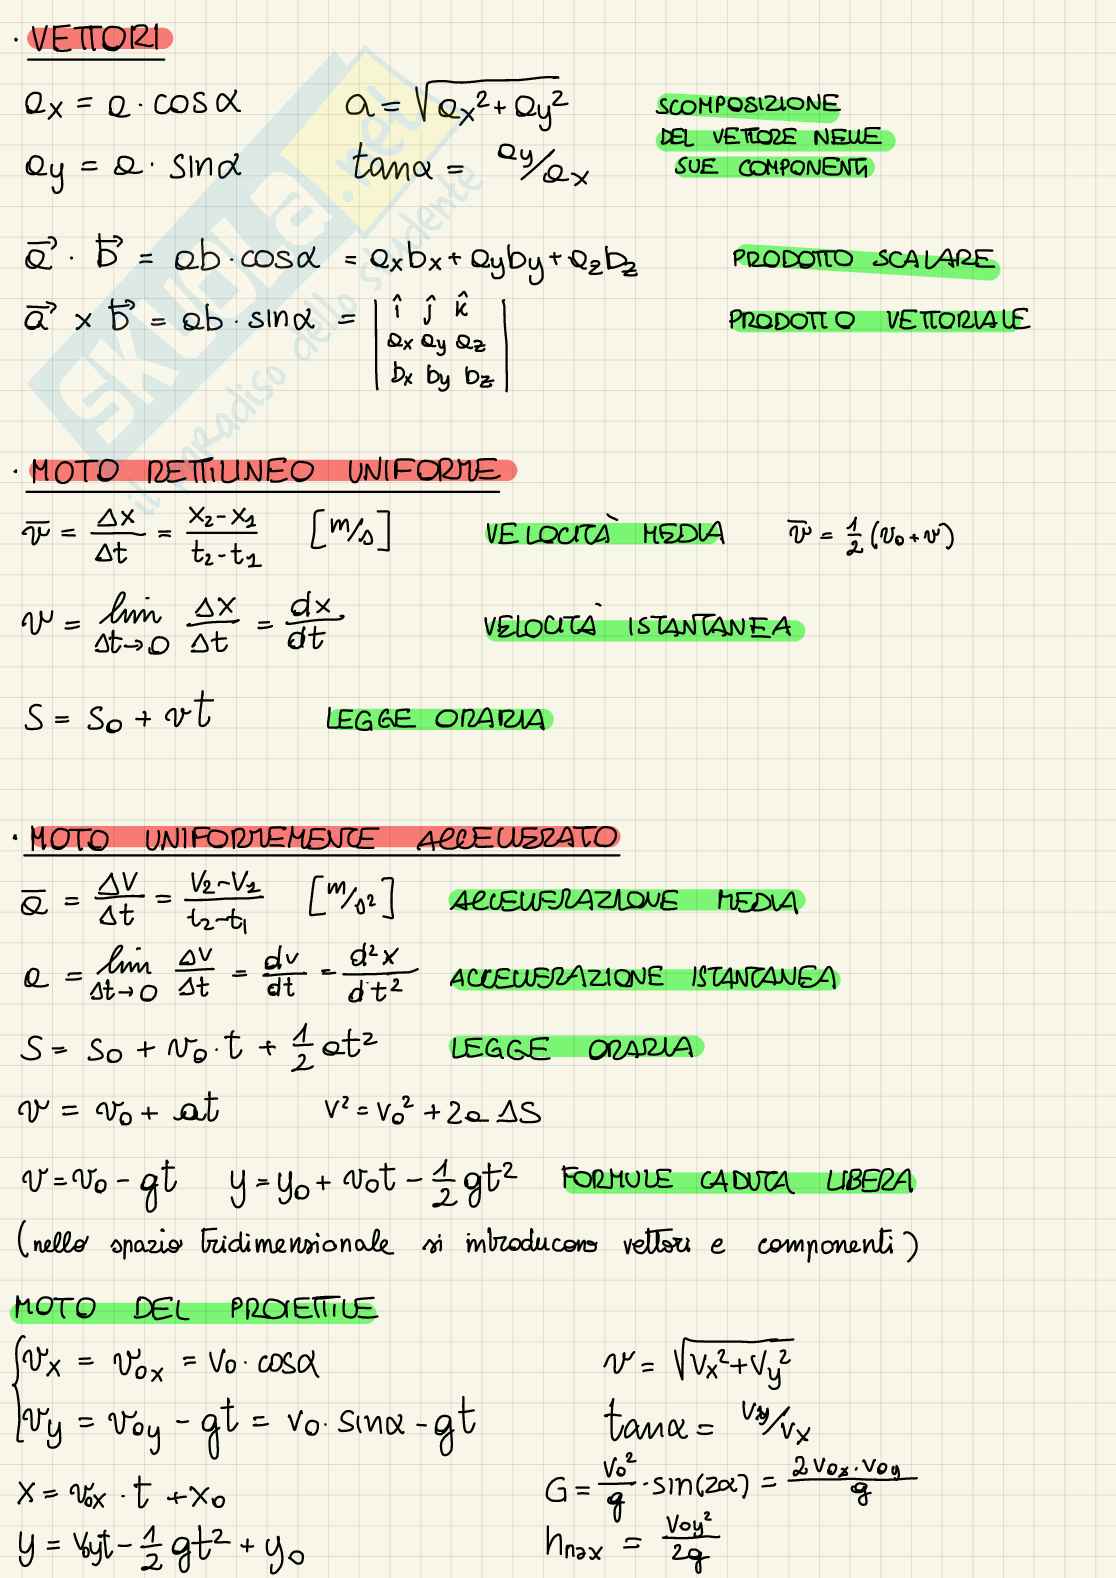 · VETTORI
ax = a · cosα    a = √(ax² + ay²)    SCOMPOSIZIONE
DEL VETTORE NELLE
ay = a · sinα    tanα = ay/ax    SUE COMPONENTI
a⃗ · b⃗ = ab · cosα = axbx + ayby + azbz    PRODOTTO SCALARE
a⃗ × b⃗ = ab · sinα = | î ĵ k̂ |    PRODOTTO VETTORIALE
| ax ay az |
| bx by bz |
SKUOLA.net
il paradiso dello studente
· MOTO RETTILINEO UNIFORME
v̅ = Δx/Δt = (x₂-x₁)/(t₂-t₁)    [m/s]    VELOCITÀ MEDIA    v̅ = 1/2 (v₀+v)
v = lim Δt→0 Δx/Δt = dx/dt    VELOCITÀ ISTANTANEA
S = S₀ + vt    LEGGE ORARIA
· MOTO UNIFORMEMENTE ACCELLERATO
a̅ = ΔV/Δt = (V₂-V₁)/(t₂-t₁)    [m/s²]    ACCELLERAZIONE MEDIA
a = lim Δt→0 ΔV/Δt = dv/dt = d²x/dt²    ACCELLERAZIONE ISTANTANEA
S = S₀ + v₀·t + 1/2 at²    LEGGE ORARIA
v = v₀ + at    V² = V₀² + 2a ΔS
v = v₀ - gt    y = y₀ + v₀t - 1/2 gt²    FORMULE CADUTA LIBERA
(nello spazio tridimensionale si introducono vettori e componenti)
MOTO DEL PROIETTILE
{ vx = v₀x = V₀ · cosα    v = √(Vx² + Vy²)
vy = v₀y - gt = V₀ · sinα - gt    tanα = Vy/Vx
x = v₀x · t + x₀    G = V₀²/g · sin(2α) = 2V₀x·V₀y/g
y = V₀yt - 1/2 gt² + y₀    hmax = V₀y²/2g